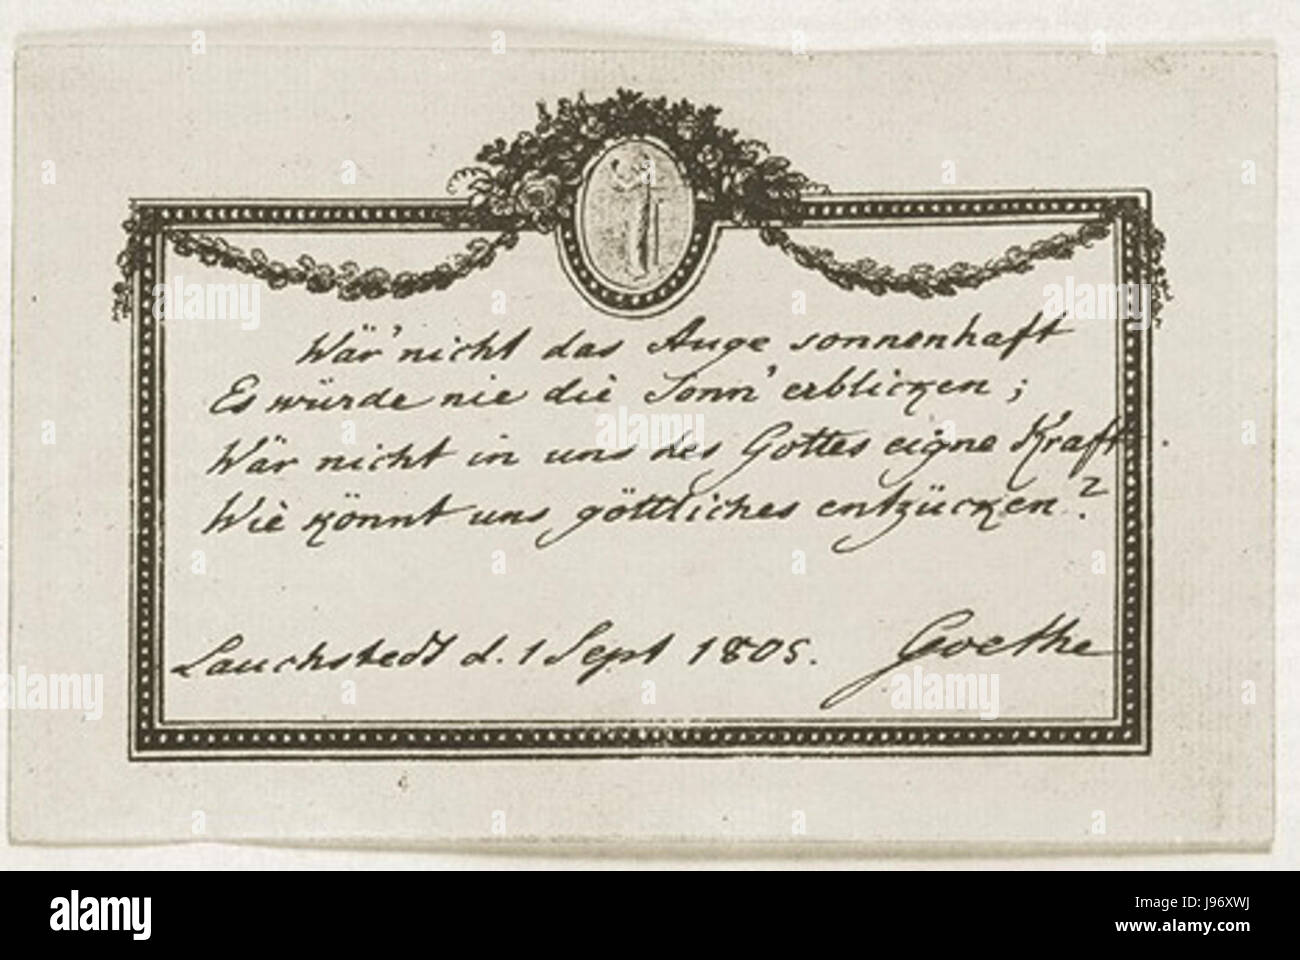 Wär' nicht das Auge sonnenhaft
Es würde nie die Sonn' erblicken;
Wär nicht in uns des Gottes eigne Kraft.
Wie könnt uns göttliches entzücken?
Lauchstedt d. 1 Sept 1805. Goethe
alamy
Image ID: J96XWJ
www.alamy.com